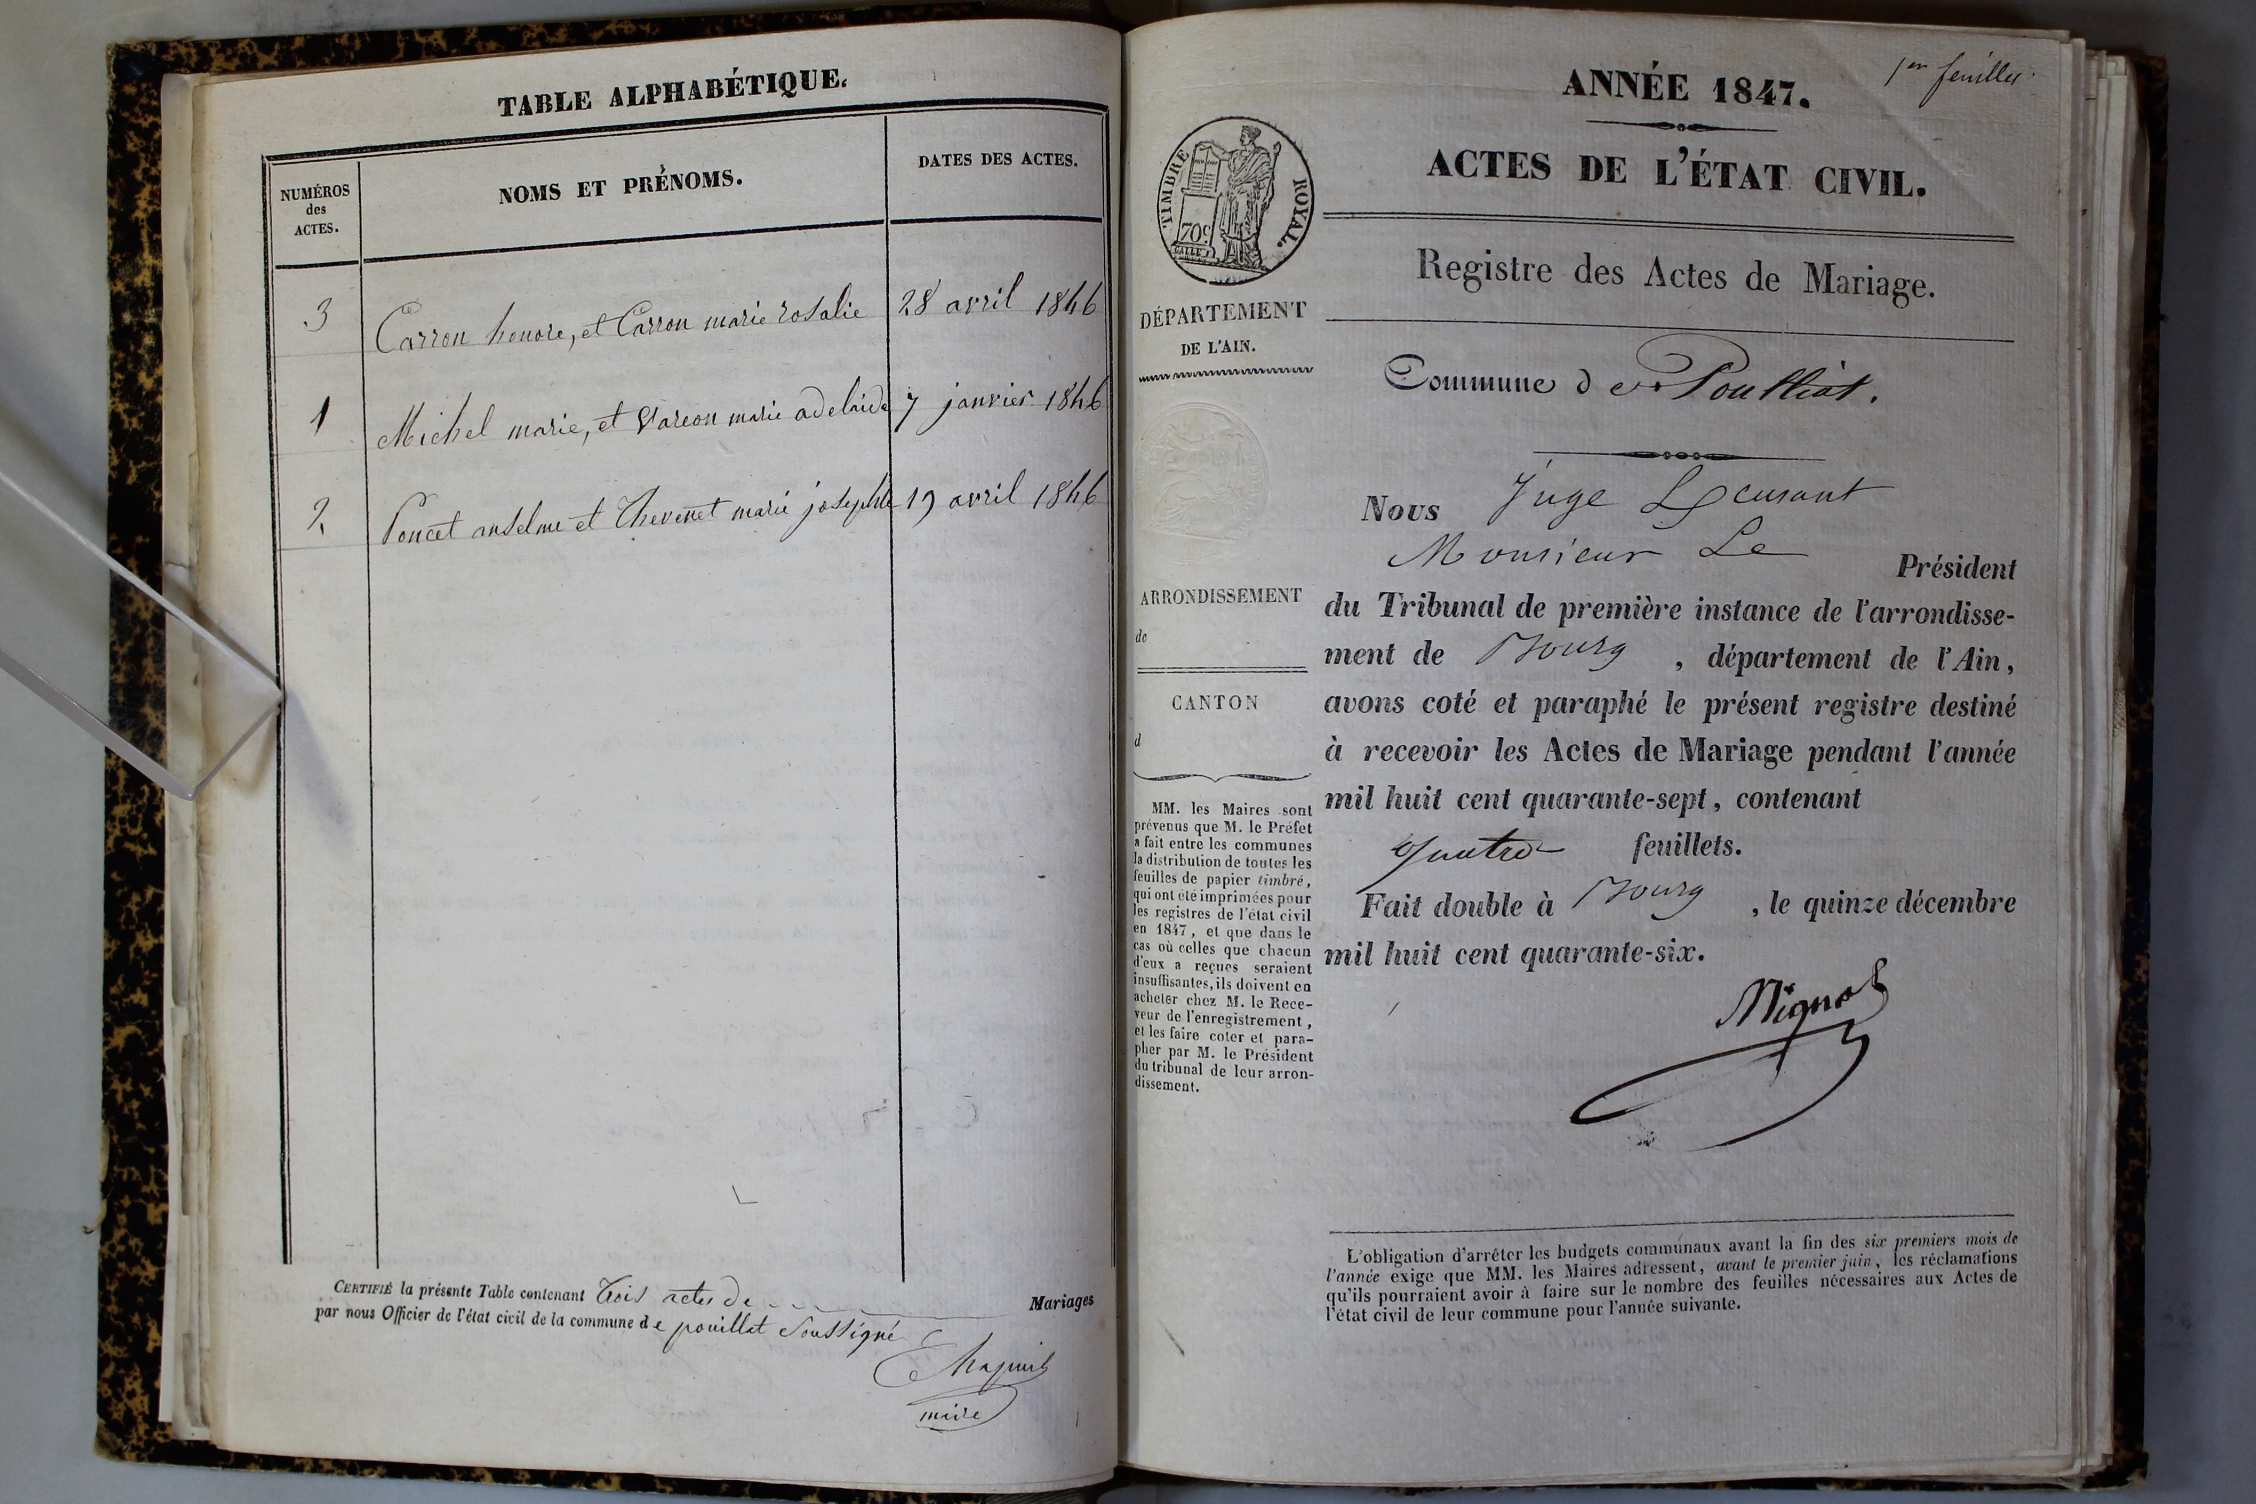 TABLE ALPHABÉTIQUE.
NUMÉROS
des
ACTES.
NOMS ET PRÉNOMS.
DATES DES ACTES.
3 Carron honore, et Carron marie rosalie 28 avril 1846
1 Michel marie, et Vareon marie adelaide 7 janvier 1846
2 Poncet anselme et Thevenet marie josephte 19 avril 1846
CERTIFIÉ la présente Table contenant trois actes de Mariages
par nous Officier de l'état civil de la commune de pouillat soussigné
Chapuis
maire
1er feuillet
ANNÉE 1847.
ACTES DE L'ÉTAT CIVIL.
TIMBRE ROYAL.
70c
Registre des Actes de Mariage.
DÉPARTEMENT
DE L'AIN.
Commune de Pouillat.
Nous Juge
Monsieur Le Président
ARRONDISSEMENT
de
CANTON
d
du Tribunal de première instance de l'arrondisse-
ment de Bourg, département de l'Ain,
avons coté et paraphé le présent registre destiné
à recevoir les Actes de Mariage pendant l'année
mil huit cent quarante-sept, contenant
quatre feuillets.
Fait double à Bourg, le quinze décembre
mil huit cent quarante-six.
MM. les Maires sont
prévenus que M. le Préfet
a fait entre les communes
la distribution de toutes les
feuilles de papier timbré,
qui ont été imprimées pour
les registres de l'état civil
en 1847, et que dans le
cas où celles que chacun
d'eux a reçues seraient
insuffisantes, ils doivent en
acheter chez M. le Rece-
veur de l'enregistrement,
et les faire coter et para-
pher par M. le Président
du tribunal de leur arron-
dissement.
L'obligation d'arrêter les budgets communaux avant la fin des six premiers mois de
l'année exige que MM. les Maires adressent, avant le premier juin, les réclamations
qu'ils pourraient avoir à faire sur le nombre des feuilles nécessaires aux Actes de
l'état civil de leur commune pour l'année suivante.